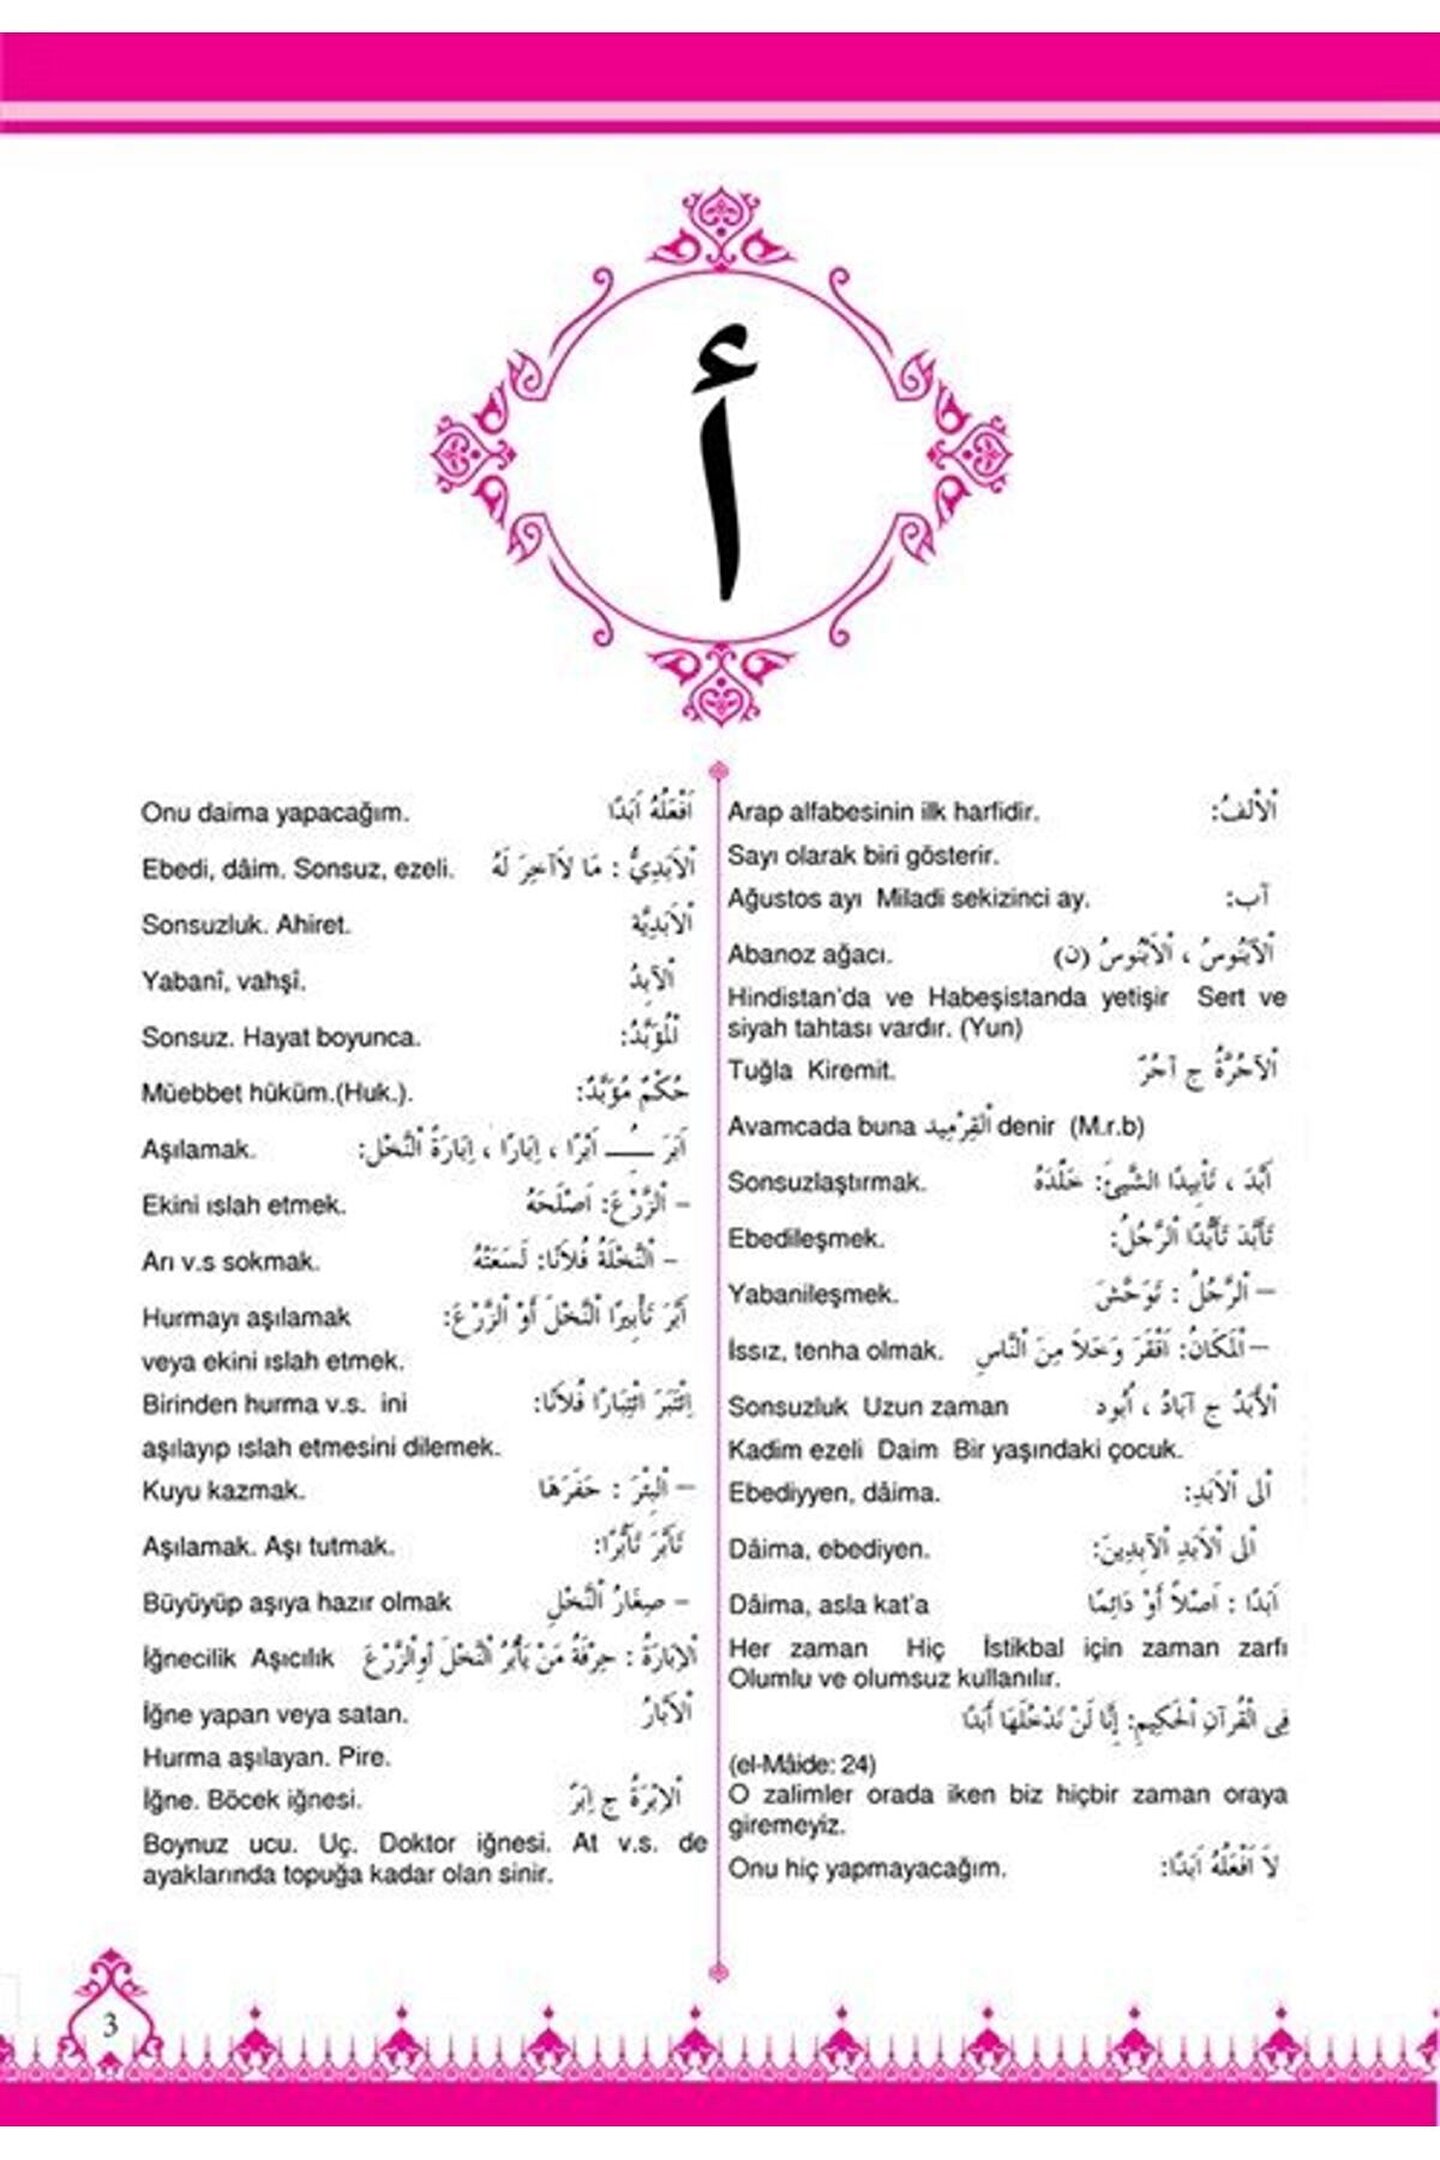 أ
Arap alfabesinin ilk harfidir. اَلْاَلْفُ:
Sayı olarak biri gösterir.
Ağustos ayı Miladi sekizinci ay. آب:
Abanoz ağacı. اَلْآبَنُوسُ ، اَلْأَبْنُوسُ (ن)
Hindistan'da ve Habeşistanda yetişir Sert ve
siyah tahtası vardır. (Yun)
Tuğla Kiremit. اَلْآجُرَّةُ ج آجُرٌ
Avamcada buna اَلْقِرْمِيد denir (M.r.b)
Sonsuzlaştırmak. اَبَّدَ ، تَأْبِيدًا الشَّيْئَ: خَلَّدَهُ
Ebedileşmek. تَأَبَّدَ تَأَبُّدًا اَلرَّجُلُ:
Yabanileşmek. – اَلرَّجُلُ : تَوَحَّشَ
İssız, tenha olmak. – اَلْمَكَانُ: اَقْفَرَ وَخَلاَ مِنَ النَّاسِ
Sonsuzluk Uzun zaman اَلْأَبَدُ ج آبَادٌ ، اُبُود
Kadim ezeli Daim Bir yaşındaki çocuk.
Ebediyyen, dâima. اَلَى اْلاَبَدِ:
Dâima, ebediyen. اَلَى اْلاَبَدِ اْلآبِدِينَ:
Dâima, asla kat'a اَبَدًا : اَصْلاً أَوْ دَائِمًا
Her zaman Hiç İstikbal için zaman zarfı
Olumlu ve olumsuz kullanılır.
فِى الْقُرْآنِ الْحَكِيمِ: إِنَّا لَنْ نَدْخُلَهَا أَبَدًا
(el-Mâide: 24)
O zalimler orada iken biz hiçbir zaman oraya
giremeyiz.
Onu hiç yapmayacağım. لاَ اَفْعَلُهُ اَبَدًا:
Onu daima yapacağım. اَفْعَلُهُ اَبَدًا
Ebedi, dâim. Sonsuz, ezeli. اَلْاَبَدِيُّ : مَا لاَآخِرَ لَهُ
Sonsuzluk. Ahiret. اَلْاَبَدِيَّة
Yabanî, vahşî. اَلْآبِدُ
Sonsuz. Hayat boyunca. اَلْمُؤَبَّدُ:
Müebbet hüküm.(Huk.). حُكْمٌ مُؤَبَّدٌ:
Aşılamak. اَبَرَ ـُـ اَبْرًا ، اِبَارًا ، اِبَارَةً اَلنَّخْلَ:
Ekini ıslah etmek. – اَلزَّرْعَ: اَصْلَحَهُ
Arı v.s sokmak. – اَلنَّحْلَةُ فُلاَنًا: لَسَعَتْهُ
Hurmayı aşılamak اَبَّرَ تَأْبِيرًا اَلنَّخْلَ أَوْ اَلزَّرْعَ:
veya ekini ıslah etmek.
Birinden hurma v.s. ini اِئْتَبَرَ ائْتِبَارًا فُلاَنًا:
aşılayıp ıslah etmesini dilemek.
Kuyu kazmak. – اَلْبِئْرَ : حَفَرَهَا
Aşılamak. Aşı tutmak. تَأَبَّرَ تَأَبُّرًا:
Büyüyüp aşıya hazır olmak – صِغَارُ اَلنَّخْلِ
İğnecilik Aşıcılık اَلْاِبَارَةُ : حِرْفَةُ مَنْ يَأْبُرُ اَلنَّخْلَ اَوِالزَّرْعَ
İğne yapan veya satan. اَلْاَبَّارُ
Hurma aşılayan. Pire.
İğne. Böcek iğnesi. اَلْاِبْرَةُ ج اِبَرٌ
Boynuz ucu. Uç. Doktor iğnesi. At v.s. de
ayaklarında topuğa kadar olan sinir.
3